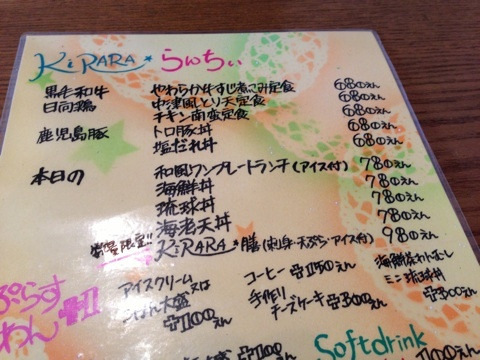 KiRARA★らんちぃ
黒毛和牛 やわらか牛すじ煮こみ定食 680えん
日向鶏 中津風とり天定食 680えん
チキン南蛮定食 680えん
鹿児島豚 トロ豚丼 680えん
塩だれ丼 680えん
本日の 和風ワンプレートランチ(アイス付) 780えん
海鮮丼 780えん
琉球丼 780えん
海老天丼 780えん
限定!! KiRARA★膳(刺身・天ぷら・アイス付) 980えん
ぷらす わん +1
アイスクリーム 又は ごはん大盛 +100えん
コーヒー +150えん
手作り チーズケーキ +300えん
ミニ琉球丼 +300えん
Softdrink
100えん